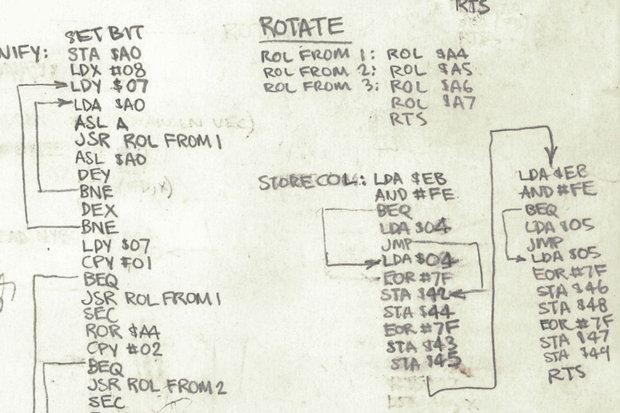 SET BIT
NIFY: STA $A0
LDX #08
LDY $07
LDA $A0
ASL A
JSR ROL FROM 1
ASL $A0
DEY
BNE
DEX
BNE
LDY $07
CPY #01
BEQ
JSR ROL FROM 1
SEC
ROR $A4
CPY #02
BEQ
JSR ROL FROM 2
SEC
RTS
ROTATE
ROL FROM 1: ROL $A4
ROL FROM 2: ROL $A5
ROL FROM 3: ROL $A6
ROL $A7
RTS
STORECOL: LDA $EB
AND #FE
BEQ
LDA $04
JMP
LDA $04
EOR #7F
STA $42
STA $44
EOR #7F
STA $43
STA $45
LDA $EB
AND #FE
BEQ
LDA $05
JMP
LDA $05
EOR #7F
STA $46
STA $48
EOR #7F
STA $47
STA $49
RTS